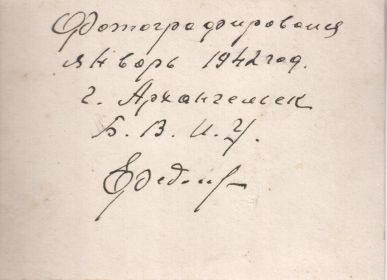 Фотографировался
январь 1942 год.
г. Архангельск
Б. В. И. У.